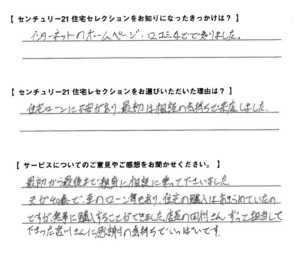 【 センチュリー21 住宅セレクションをお知りになったきっかけは？ 】
インターネットのホームページ・口コミなどで知りました。
【 センチュリー21 住宅セレクションをお選びいただいた理由は？ 】
住宅ローンに不安があり、最初は相談の気持ちで来店しました。
【 サービスについてのご意見やご感想をお聞かせください。 】
最初から最後まで親身に相談に乗って下さいました
夫が40歳で車のローン等もあり、住宅の購入はあきらめていたの
ですが無事に購入することができました。店長の田村さん ずっと担当して
下さった 川さんに感謝の気持ちでいっぱいです。